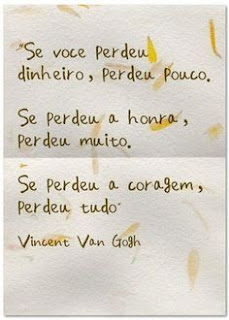 "Se voce perdeu
dinheiro, perdeu pouco.
Se perdeu a honra,
perdeu muito.
Se perdeu a coragem,
perdeu tudo"
Vincent Van Gogh